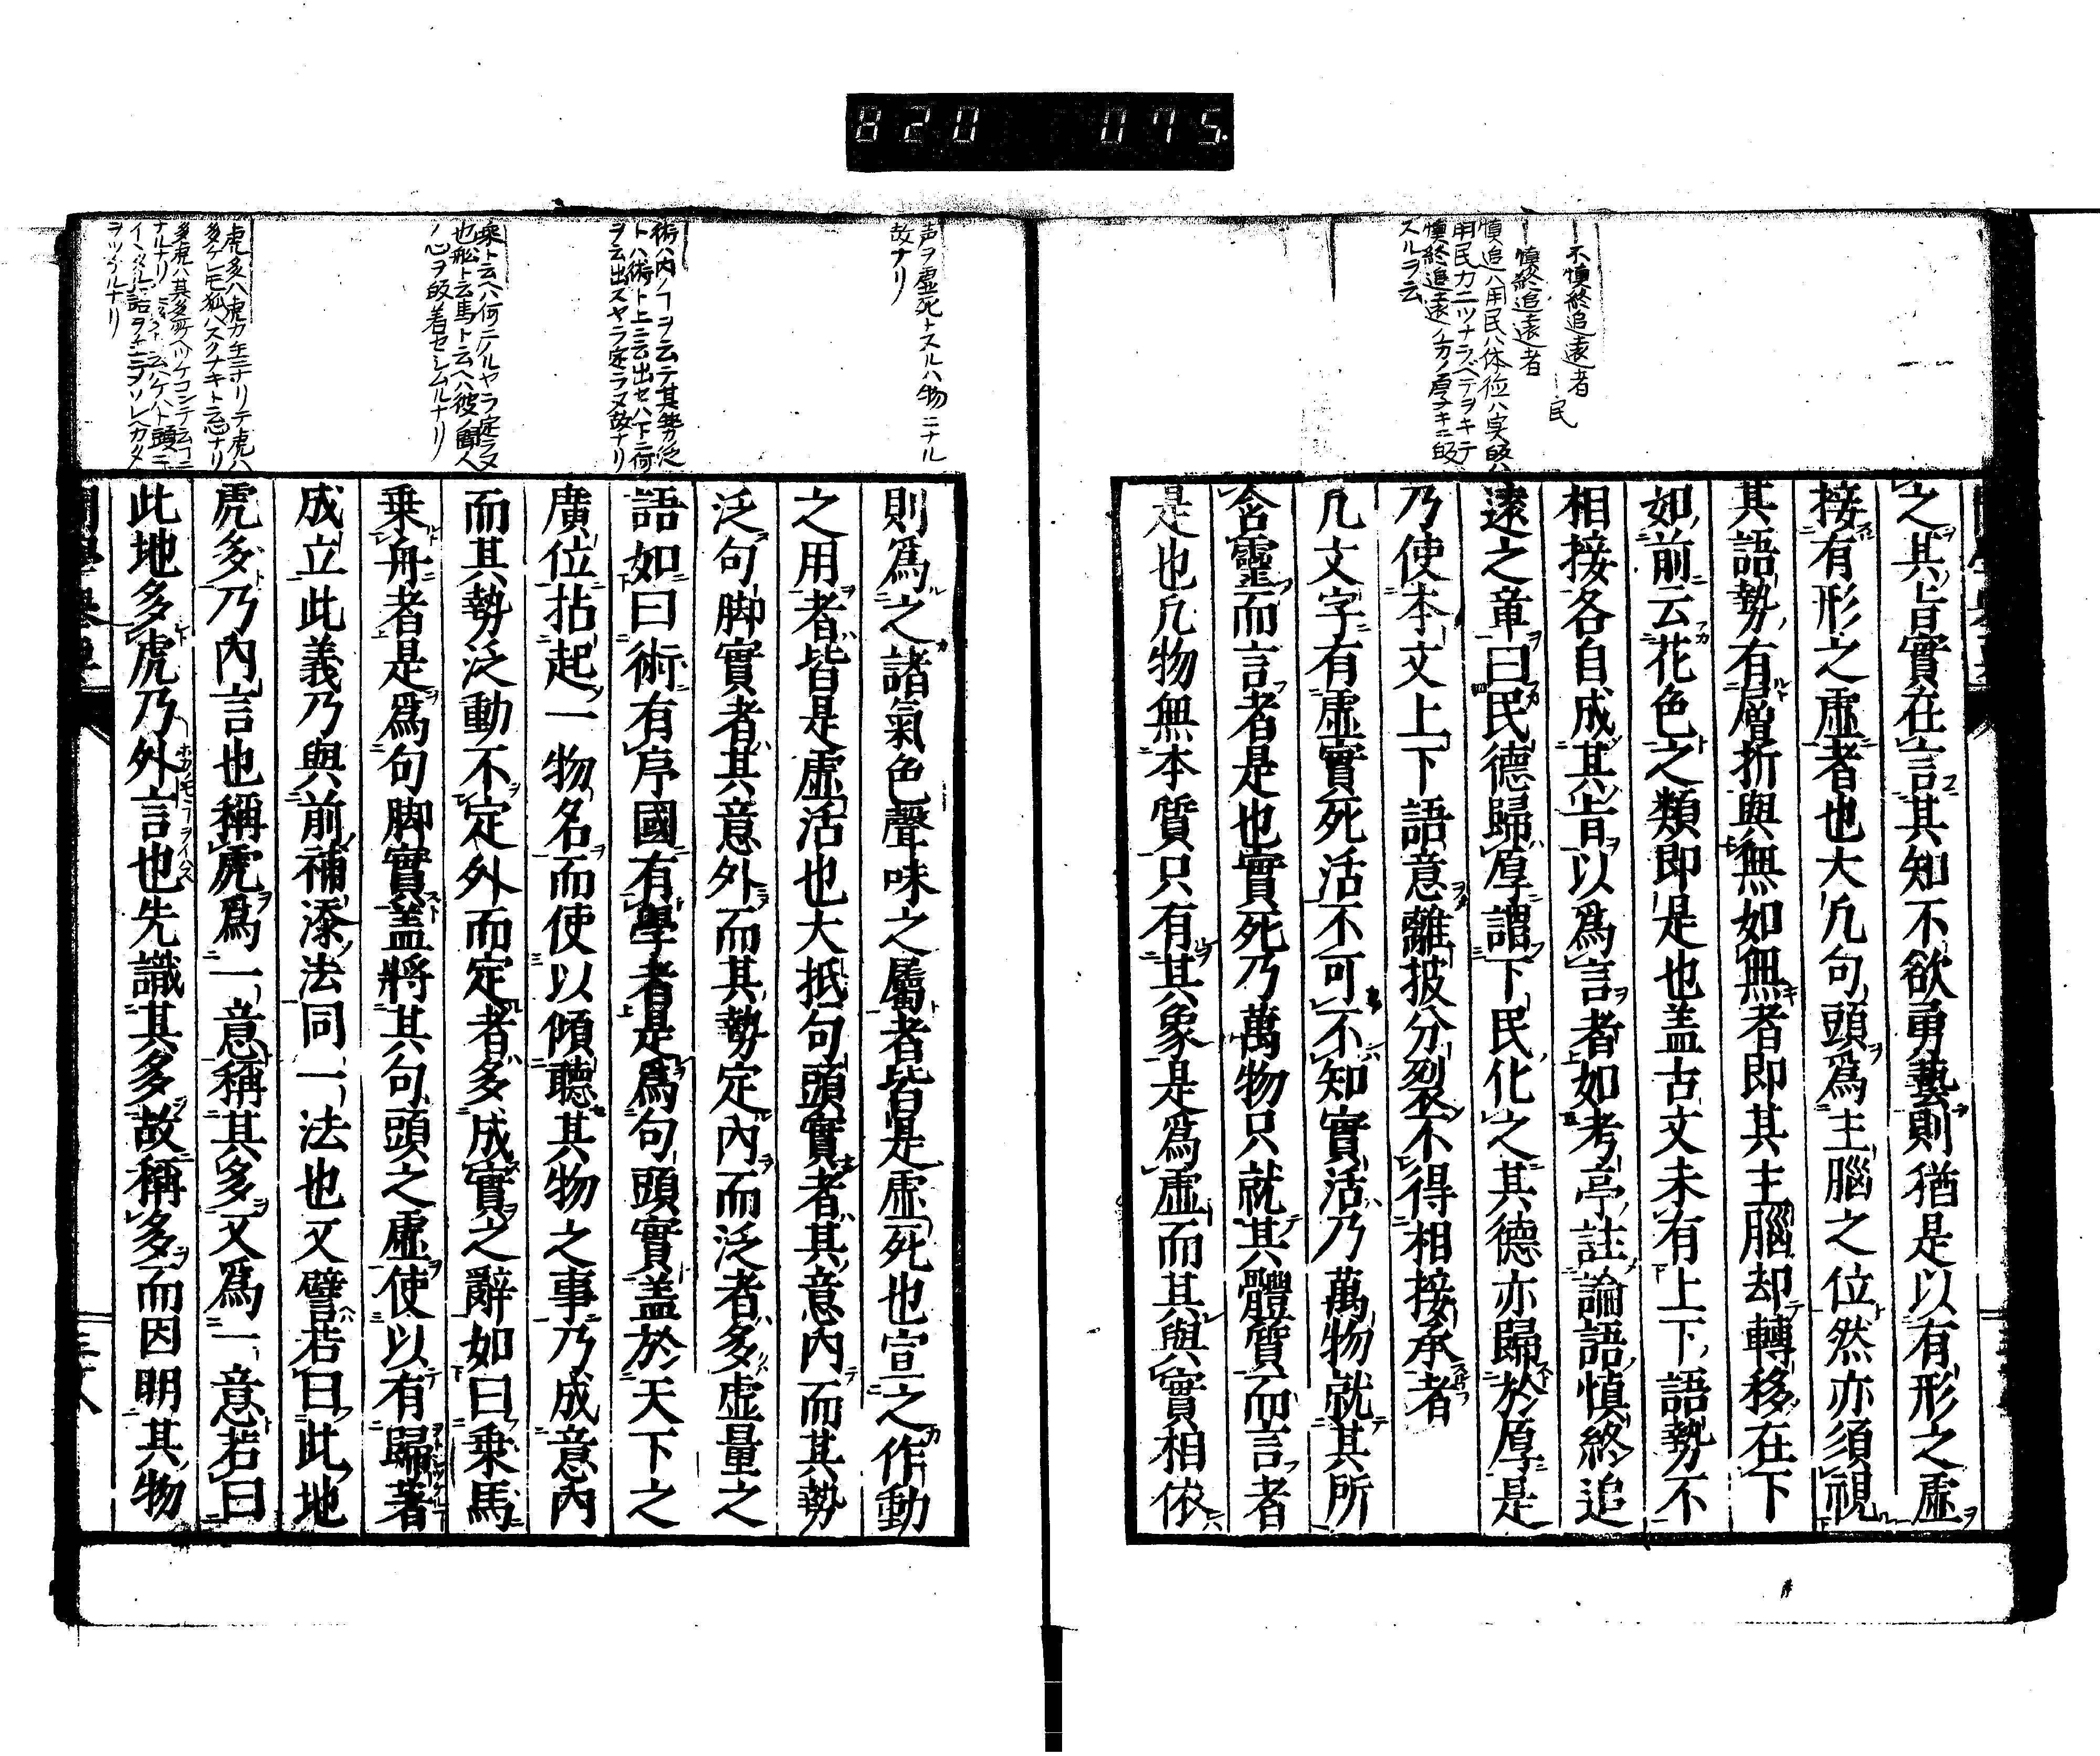 820 075.
不慎終追遠者
民
慎終追遠者
慎追ハ用民ハ体位ハ実
用民カニツナラベテヲキテ
慎終追遠ノ方ノ厚キニ
スルヲ云
之其旨實在言其知不欲勇藝則猶是以有形之虛
接有形之虛者也大凡句頭爲主腦之位然亦須視
其語勢有層折與無如無者即其主腦却轉移在下
如前云花色之類即是也盖古文未有上下語勢不
相接各自成其旨以爲言者如考亭註論語愼終追
遠之章曰民德歸厚謂下民化之其德亦歸於厚是
乃使本文上下語意離披分裂不得相接承者
凡文字有虛實死活不可不知實活乃萬物就其所
含靈而言者是也實死乃萬物只就其體質而言者
是也凡物無本質只有其象是爲虛而其與實相依
声ヲ虚死トスルハ物ニナル
故ナリ
術ハ内ノヿヲ云テ其勢泛
トハ術ト上ニ云出セハ下ニ何
ヲ云出スヤラ定ラヌ故ナリ
乗ト云ヘハ何ニノルヤラ定ラヌ
也舩ト云馬ト云ヘハ彼ノ聞人
ノ心ヲ皈着セシムルナリ
虎多ハ虎カ主ニナリテ虎ハ
多ケレモ狐ハスクナキト云心ナリ
ヲツクルナリ
則爲之諸氣色聲味之屬者皆是虛死也宣之作動
之用者皆是虛活也大抵句頭實者其意内而其勢
泛句脚實者其意外而其勢定内而泛者多虛量之
語如曰術有序國有學者是爲句頭實盖於天下之
廣位拈起一物名而使以傾聽其物之事乃成意内
而其勢泛動不定外而定者多成實之辭如曰乗馬
乗舟者是爲句脚實盖將其句頭之虛使以有歸著
成立此義乃與前補添法同一法也又譬若曰此地
虎多乃内言也稱虎爲一意稱其多又爲一意若曰
此地多虎乃外言也先識其多故稱多而因明其物